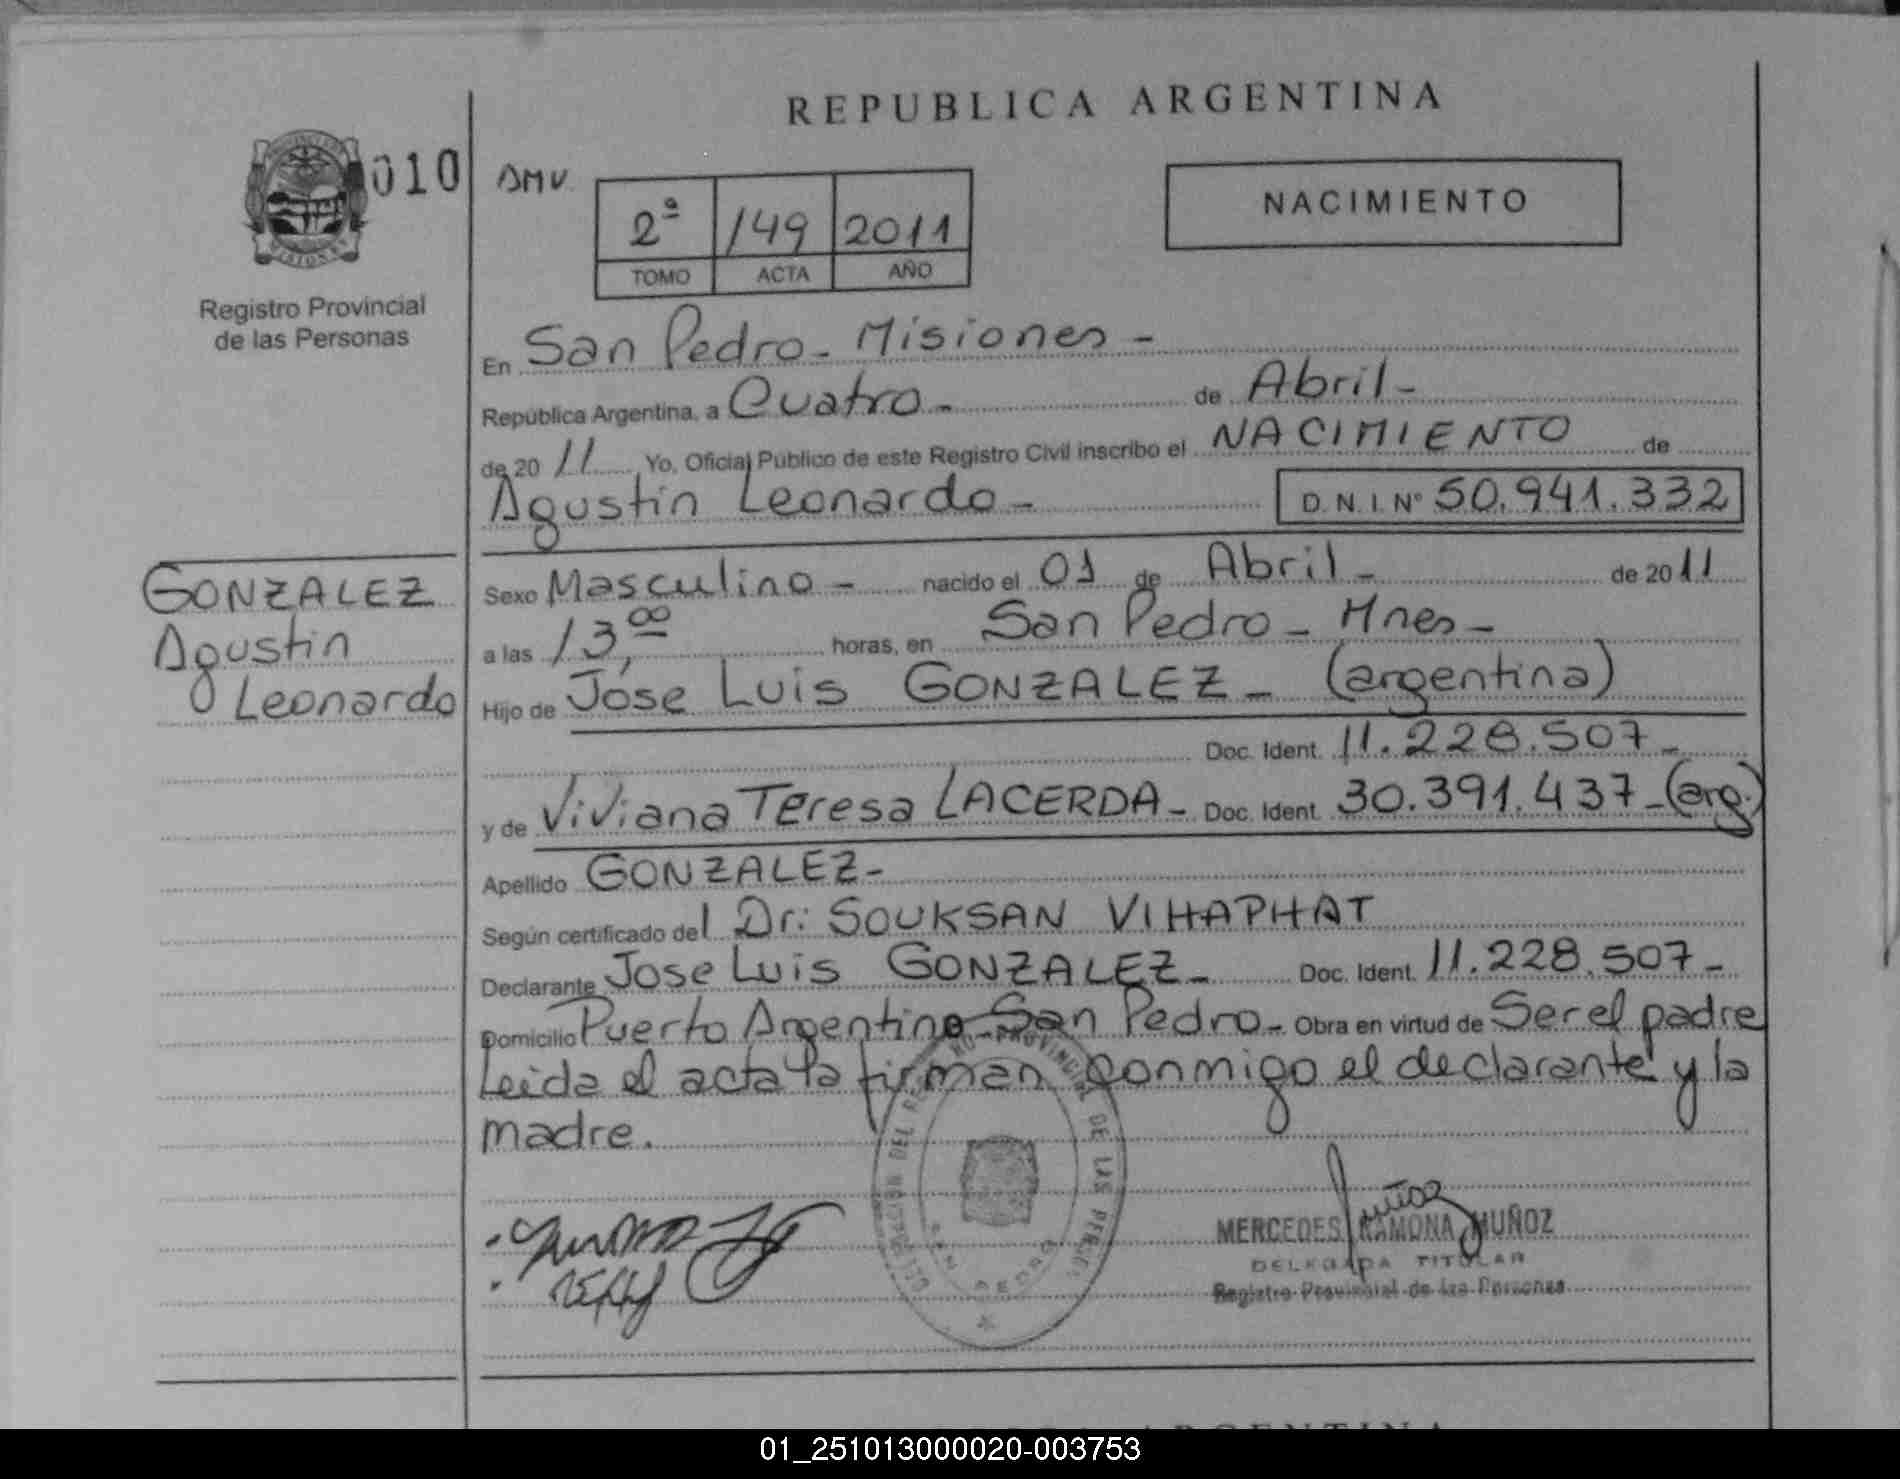 REPUBLICA ARGENTINA
010
DMV
NACIMIENTO
2ª 149 2011
TOMO ACTA AÑO
Registro Provincial
de las Personas
En San Pedro - Misiones -
República Argentina, a Cuatro - de Abril -
de 20 11 Yo, Oficial Público de este Registro Civil inscribo el NACIMIENTO de
Agustin Leonardo - D.N.I.Nº 50.941.332
GONZALEZ
Agustin
Leonardo
Sexo Masculino - nacido el 01 de Abril - de 20 11
a las 13,00 horas, en San Pedro - Mnes -
Hijo de Jose Luis GONZALEZ - (argentina)
Doc. Ident. 11.228.507 -
y de Viviana Teresa LACERDA - Doc. Ident. 30.391.437 - (arg.)
Apellido GONZALEZ -
Según certificado del Dr: SOUKSAN VIHAPHAT
Declarante Jose Luis GONZALEZ - Doc. Ident. 11.228.507 -
Domicilio Puerto Argentino - San Pedro - Obra en virtud de Ser el padre
Leida el acta la firman conmigo el declarante y la
madre.
DELEGACION DEL REGISTRO PROVINCIAL DE LAS PERSONAS
SAN PEDRO
Muñoz
MERCEDES RAMONA MUÑOZ
DELEGADA TITULAR
Registro Provincial de las Personas
ARGENTINA
01_251013000020-003753